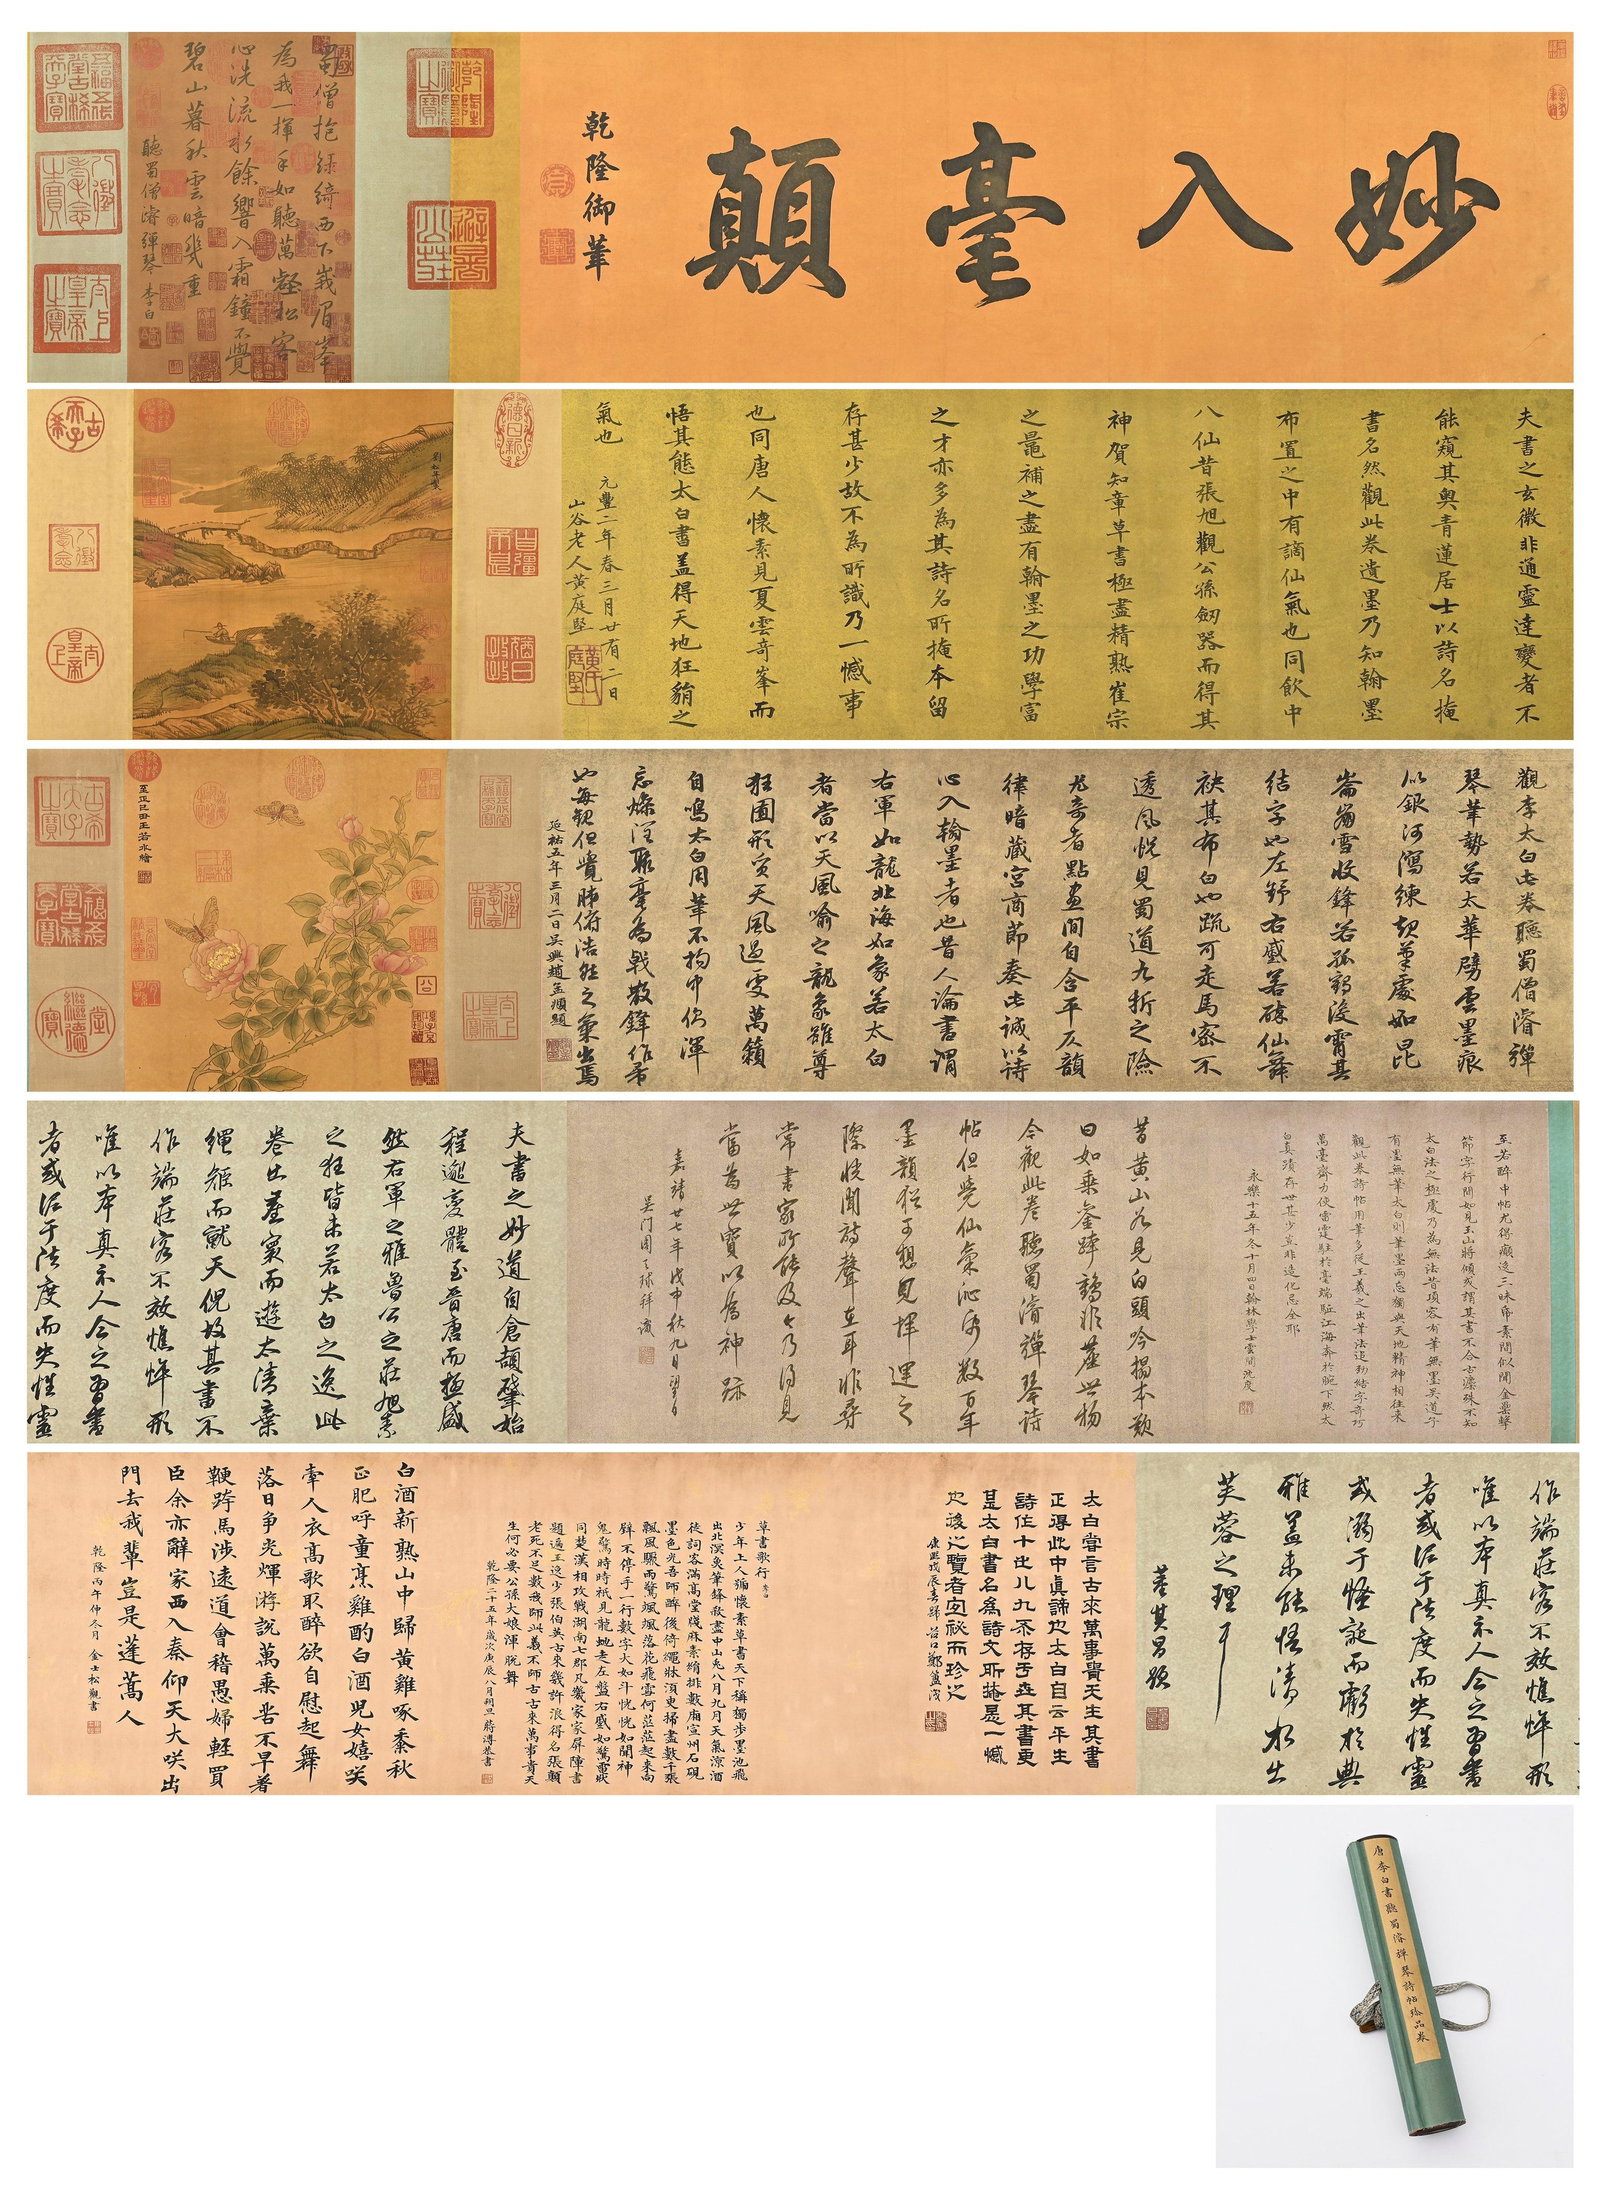 妙入毫顛
乾隆御筆
蜀僧抱綠綺西下峩眉峯
為我一揮手如聽萬壑松客
心洗流水餘響入霜鐘不覺
碧山暮秋雲暗幾重
聽蜀僧濬彈琴 李白
夫書之玄微非通靈達變者不
能窺其奥青蓮居士以詩名掩
書名然觀此卷遺墨乃知翰墨
布置之中有謫仙氣也同飲中
八仙昔張旭觀公孫劒器而得其
神賀知章草書極盡精熟崔宗
之最補之盡有翰墨之功學富
之才亦多為其詩名所掩本留
存甚少故不為所識乃一憾事
也同唐人懷素見夏雲奇峯而
悟其態太白書蓋得天地狂狷之
氣也
元豐二年春三月廿有二日
山谷老人黃庭堅
劉松年製
觀李太白此卷聽蜀僧濬彈
琴筆勢若太華劈雲墨痕
似銀河瀉練起筆處如昆
崙崩雪收鋒若孤鶴凌霄其
結字也左舒右盛若醉仙舞
袂其布白也疏可走馬密不
透風恍見蜀道九折之險
尤奇者點畫間自含平仄韻
律暗藏宮商節奏此誠以詩
心入翰墨者也昔人論書謂
右軍如龍北海如象若太白
者當以天風喻之龍象雖尊
狂圖形变天風過雯萬籟
自鳴太白用筆不拘中側渾
忘燥溼聚毫為戟散鋒作帚
也每觀但覺肺腑浩然之氣出焉
延祐五年三月二日吳興趙孟頫題
至正己酉王若水繪
至若醉中帖尤得癲逸三昧帋素間似聞金罍擊
節字行間如見玉山將傾或謂其書不合古灋殊不知
太白法之極處乃為無法昔項容有筆無墨吳道子
有墨無筆太白則筆墨兩忘獨與天地精神相往來
觀此卷詩帖用筆多從王羲之出筆法遒勁結字奇巧
萬毫齋力使雷霆駐於毫端驅江海奔於腕下然太
白真蹟存世甚少豈非造化忌全耶
永樂十五年冬十月四日翰林學士雲間沈度
昔黃山谷見白頭吟搨本歎
曰如乗鸞跨鶴非塵世物
今觀此卷聽蜀濬彈琴詩
帖但覺仙氣沁脾數百年
墨韻猶可想見揮運之
際恍聞詩聲在耳非尋
常書家所能及今乃得見
當為世寶以為神跡
嘉靖廿七年戊申秋九月望日
吳门周天球拜識
夫書之妙道自倉頡肇始
程邈变體至晉唐而極盛
然右軍之雅魯公之莊旭素
之狂皆未若太白之逸此
卷出塵寰而遊太清棄
繩矩而就天倪故其書不
作端莊容不效憔悴形
唯以本真示人今之習書
者或泥于法度而失性靈
作端莊容不效憔悴形
唯以本真示人今之習書
者或泥于法度而失性靈
或溺于怪誕而虧於典
雅蓋未能悟清水出
芙蓉之理耳
董其昌題
太白嘗言古來萬事貴天生其書
正得此中眞諦也太白自云平生
詩作十出八九不存于玆其書更
是太白書名爲詩文所掩是一憾
也後之覽者宜祕而珍之
草書歌行 李白
少年上人號懷素草書天下稱獨步墨池飛
出北溟魚筆鋒殺盡中山兎八月九月天氣涼酒
徒詞客滿高堂牋麻素絹排數廂宣州石硯
墨色光吾師醉後倚繩牀須臾掃盡數千張
飄風驟雨驚颯颯落花飛雪何茫茫起來向
壁不停手一行數字大如斗恍恍如聞神
鬼驚時時衹見龍虵走左盤右蹙如驚電狀
同楚漢相攻戰湖南七郡凡幾家家家屏障書
題遍王逸少張伯英古來幾許浪得名張顛
老死不足數我師此義不師古古來萬事貴天
生何必要公孫大娘渾脫舞
乾隆二十五年歲次庚辰八月朔旦蔣溥恭書
白酒新熟山中歸黄雞啄黍秋
正肥呼童烹雞酌白酒兒女嬉咲
牽人衣高歌取醉欲自慰起舞
落日争光輝游說萬乗苦不早著
鞭跨馬涉遠道會稽愚婦輕買
臣余亦辭家西入秦仰天大咲出
門去我輩豈是蓬蒿人
乾隆丙午仲冬月 金士松觀書
唐李白書聽蜀濬彈琴詩帖珍品卷